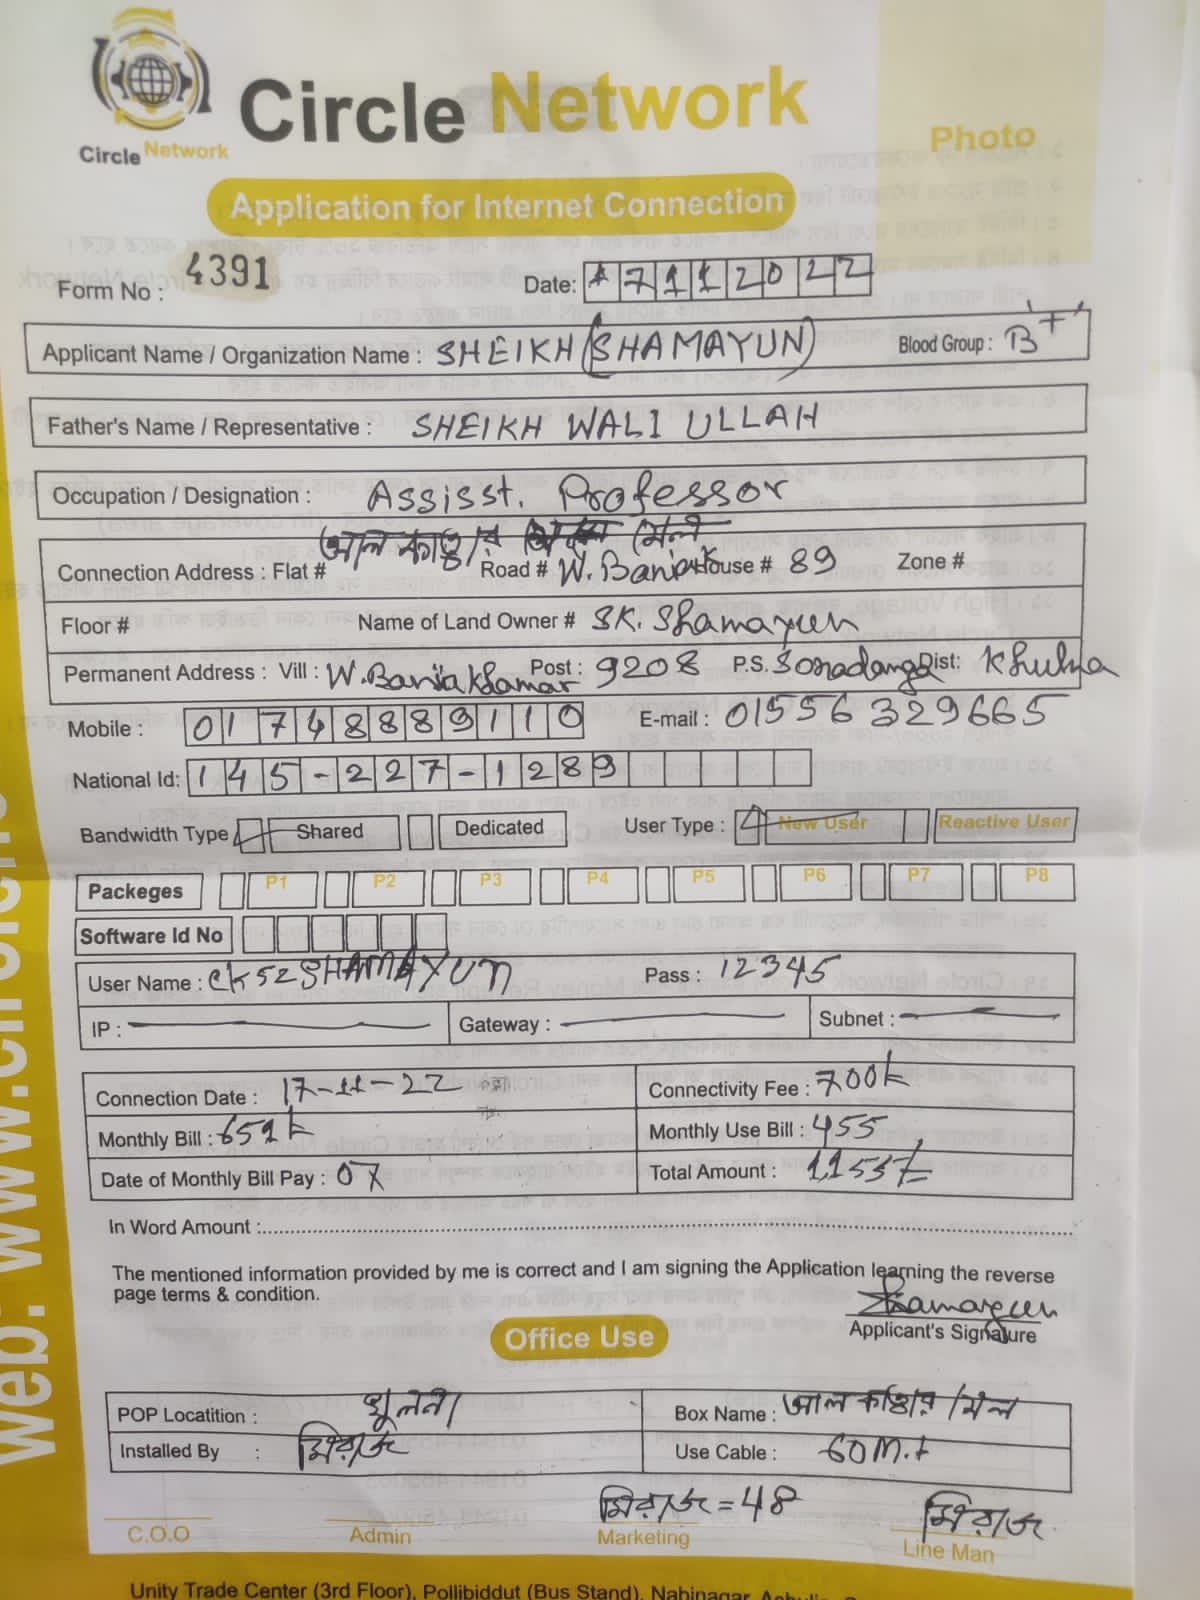 Circle Network
Circle Network
Photo
Application for Internet Connection
Form No : 4391
Date: 17112022
Applicant Name / Organization Name : SHEIKH (SHAMAYUN)
Blood Group : B+
Father's Name / Representative : SHEIKH WALI ULLAH
Occupation / Designation : Assisst. Professor
Connection Address : Flat # Road # W. Bania House # 89 Zone #
Floor # Name of Land Owner # SK. Shamayun
Permanent Address : Vill : W. Bania Khamar Post : 9208 P.S. Sonadanga Dist: Khulna
Mobile : 01748889110 E-mail : 01556329665
National Id: 145-227-1289
Bandwidth Type Shared Dedicated User Type : New User Reactive User
Packeges P1 P2 P3 P4 P5 P6 P7 P8
Software Id No
User Name : CK52SHAMAYUN Pass : 12345
IP : Gateway : Subnet :
Connection Date : 17-11-22 Connectivity Fee : 700
Monthly Bill : 651 Monthly Use Bill : 455
Date of Monthly Bill Pay : 07 Total Amount :
In Word Amount :
The mentioned information provided by me is correct and I am signing the Application learning the reverse
page terms & condition.
Shamayun
Applicant's Signature
Office Use
POP Locatition : খুলনা Box Name : আল
Installed By : মিরাজ Use Cable : 60 M.t
মিরাজ = 48 মিরাজ
C.O.O Admin Marketing Line Man
Unity Trade Center (3rd Floor), Pollibiddut (Bus Stand), Nabinagar,